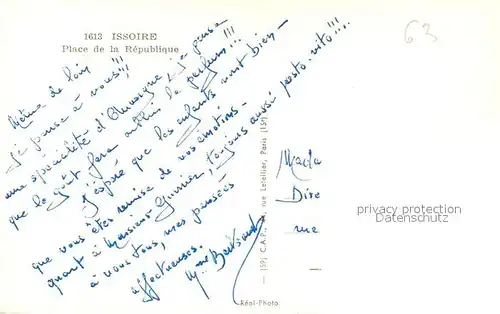 1613 ISSOIRE
Place de la République
63
Même de loin
je pense à vous!!!
une spécialité d'Auvergne, je pense
que le goût fera oublier le parfum!!!
J'espère que les enfants vont bien -
que vous êtes remise de vos émotions -
quant à Monsieur toujours aussi presto-vito!!!
à vous tous, mes pensées
affectueuses.
Mada
Dire
rue
privacy protection
Datenschutz
(19) C.A.P., rue Letellier, Paris (15e)
Réal-Photo